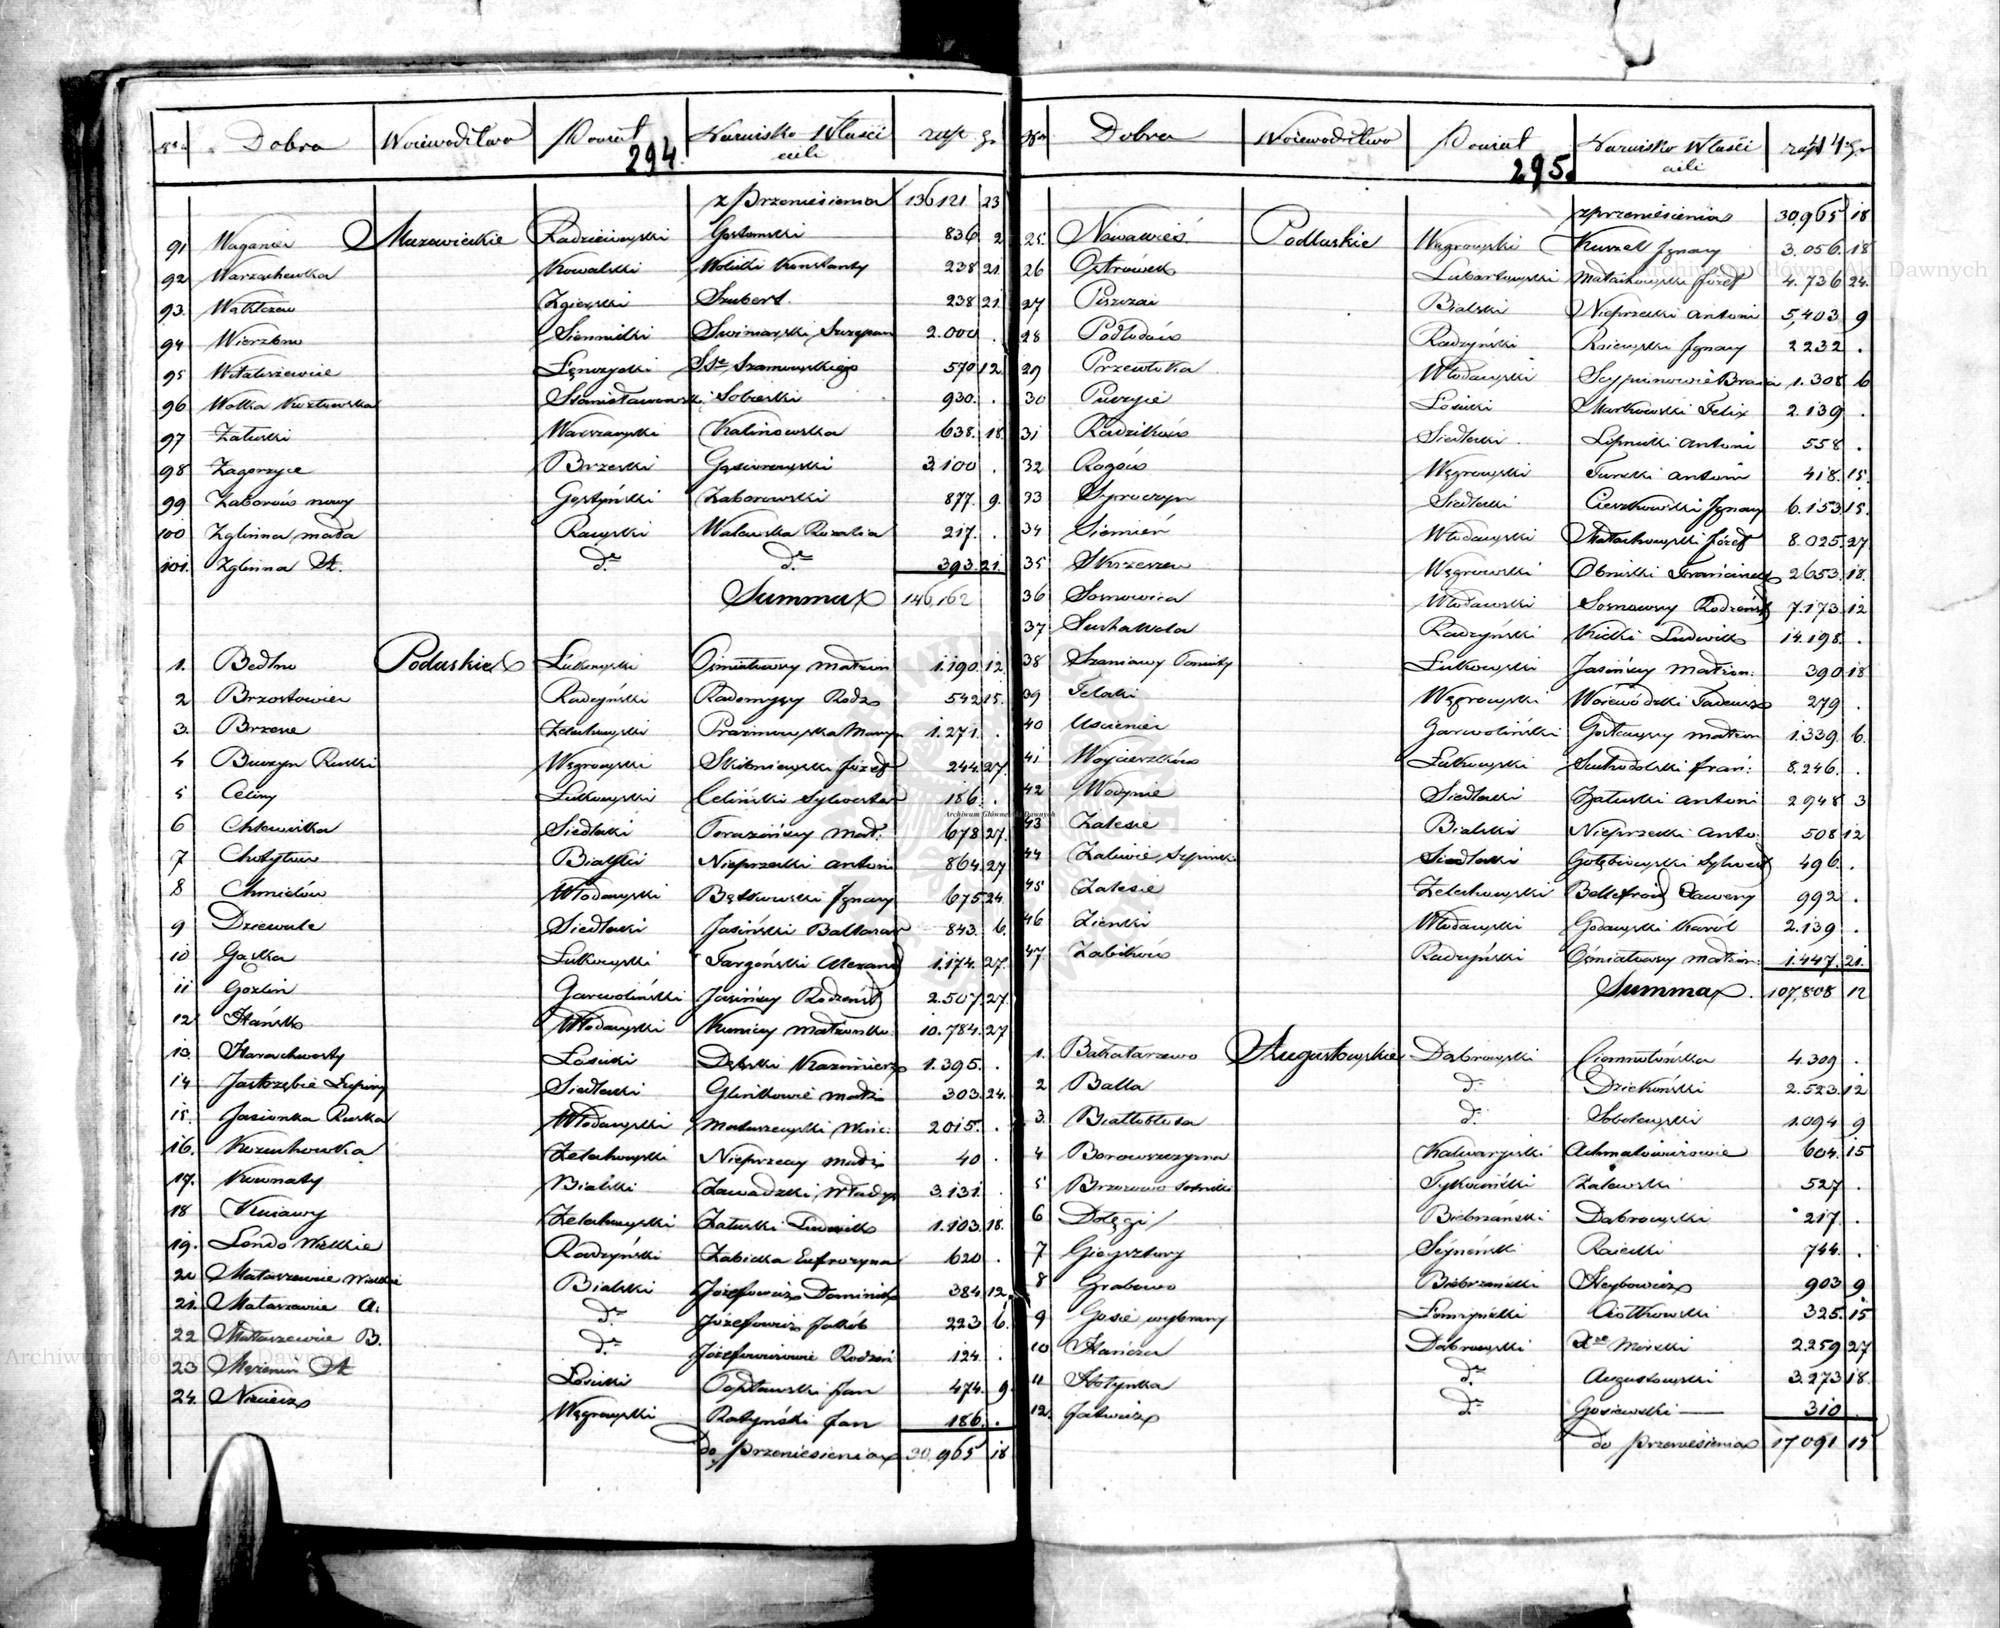 Nr. Dobra Woiewodztwo Powiat Nazwisko Właści cieli złp gr
294.
z przeniesienia 136121 23
91 Waganiec Mazowieckie Radzieiewski Gostomski 836 2
92 Warząchewka Kowalski Wolicki Konstanty 238 21
93. Zgierski Szubert. 238 21.
94 Wierzbno Siennicki Swiniarski Szczepan 2.000 .
95 Witaszewice Łęczycki SSrz Szamowskiego 570 12
96 Wolka Kozłowska Stanisławowski Sobieski 930. .
97 Załuski Warszawski Kalinowska 638. 18.
98 Zagorzyce Brzeski Gąsiorowski 3.100 .
99 Zaborów nowy Gostyński Zaborowski 877. 9.
100 Zglinna mała Rawski Walewska Rozalia 217. .
101. Zglinna A. do do 393 21.
Summa 146,162
1. Bedlno Podlaskie Łukowski Cimiatowscy małżon 1.190. 12.
2 Brzostowiec Radzyński Radomyscy Rodz 542 15.
3. Brzeze Zelechowski Prażmowska Mary 1.271. .
4 Buczyn Ruski Węgrowski Skibniewski Józef 244. 27.
5 Celiny Łukowski Celiński Sylwester 186. .
6 Chlewiska Siedlecki 678 27.
7 Chotyłow Bialski Nieprzecki Antoni 864. 27
8 Chmielów Włodawski Bętkowski Ignacy 675 24.
9 Dziewule Siedlecki Jasiński Baltazar 843. 6.
10 Gąska Łukowski Targoński Alexand 1.174. 27.
11 Gozlin Garwoliński Jasińscy Rodzeńst 2.507. 27.
12 Hańsk Włodawski Kuniccy małżonko. 10.784. 27
13. Harachwosty Łosicki Dębski Kazimierz 1.395. .
14 Jastrzębie Łupiny Siedlecki Glinkowie małż 303. 24.
15. Jasionka Ruska Włodawski Matuszewski Winc: 2015. .
16. Kozuchowka Zelechowski Nieprzecy małż 40 .
17. Kownaty Bialski Zawadzki Władys 3.131. .
18 Kuiawy Zelechowski Załuski Ludwik 1.103. 18.
19. Lendo Wielkie Radzyński Zabicka Eufrozyna 620 .
20 Mataszewie Wielkie Bialski Józefowicz Dominik 384. 12.
21. Mataszewie A. do Józefowicz Jakób 223 6.
22 Mataszewie B. do Józefowiczowie Rodzeń 124. .
23 Mężenin A Łosicki Jan 474. 9.
24. Nieciecz Węgrowski Ratyński Jan 186. .
do przeniesienia 30,965 18
Nr Dobra Woiewodztwo Powiat Nazwisko Właści cieli złp gr
295. 44
z przeniesienia 30,965 18
25. Nowawieś Podlaskie Węgrowski Kuszel Ignacy 3.056. 18
26 Ostrówek Lubartowski Małachowski Józef 4.736 24.
27 Piszczac Bialski Nieprzecki Antoni 5,403 9
28 Podludów Radzyński Raiewski Ignacy 2232 .
29 Przewłoka Włodawski Scypionowie Bracia 1.308 6
30 Puczyce Łosicki Markowski Felix 2.139 .
31 Radzików Siedlecki Lipnicki Antoni 558 .
32 Rogów Węgrowski Turski Antoni 418. 15.
33 Syroczyn Siedlecki Cieszkowski Ignacy 6.153 15.
34 Siemień Włodawski Małachowski Józef 8.025. 27
35 Skrzeszew Węgrowski Obniski Franciszek 2653. 18.
36 Sosnowica Włodawski Sosnowscy Rodzeńst 7.173. 12
37 Sucha Wola Radzyński Kicki Ludwik 14.198. .
38 Szaniawy Poniaty Łukowski Jasińscy małżon: 390 18
39 Telaki Węgrowski Woiewódzki Tadeusz 279 .
40 Uscieniec Garwoliński małżon 1.339. 6.
41 Wojcieszków Łukowski Suchodolski Fran: 8.246. .
42 Wodynie Siedlecki Załuski Antoni 2948 3
43 Zalesie Bialski Nieprzecki Anto: 508 12
44 Zaliwie Szpinki Siedlecki Gołębiowski Sylwest 496. .
45 Zalesie Zelechowski Bellefroid Xawery 992 .
46 Zienki Włodawski Godawski Karól 2.139 .
47 Zabików Radzyński Cimiatowscy małżon: 1.447. 21.
Summa 107,808 12
1. Bakałarzewo Augustowskie Dąbrowski Ciemnołońska 4.309 .
2 Balla do Dziekoński 2.523. 12
3. Białłobłota do Sobolewski 1.094 9
4 Borowszczyzna Kalwaryiski Achmatowiczowie 604. 15
5 Brzozowo Tykociński Zalewski 527 .
6 Dołęgi Biebrzański Dąbrowski 217. .
7 Giegsztory Seyneński Raiecki 744. .
8 Grabowo Biebrzański Heybowicz 903 9
9 Gosie wybrany Łomżyński Ciołkowski 325. 15
10 Hańcza Dąbrowski 2.259 27
11 Hołynka do Augustowski 3.273 18.
12. Jatwiez do Gosiewski 310 .
do przeniesienia 17091 15
Archiwum Główne Akt Dawnych
Archiwum Główne Akt Dawnych
Archiwum Główne Akt Dawnych